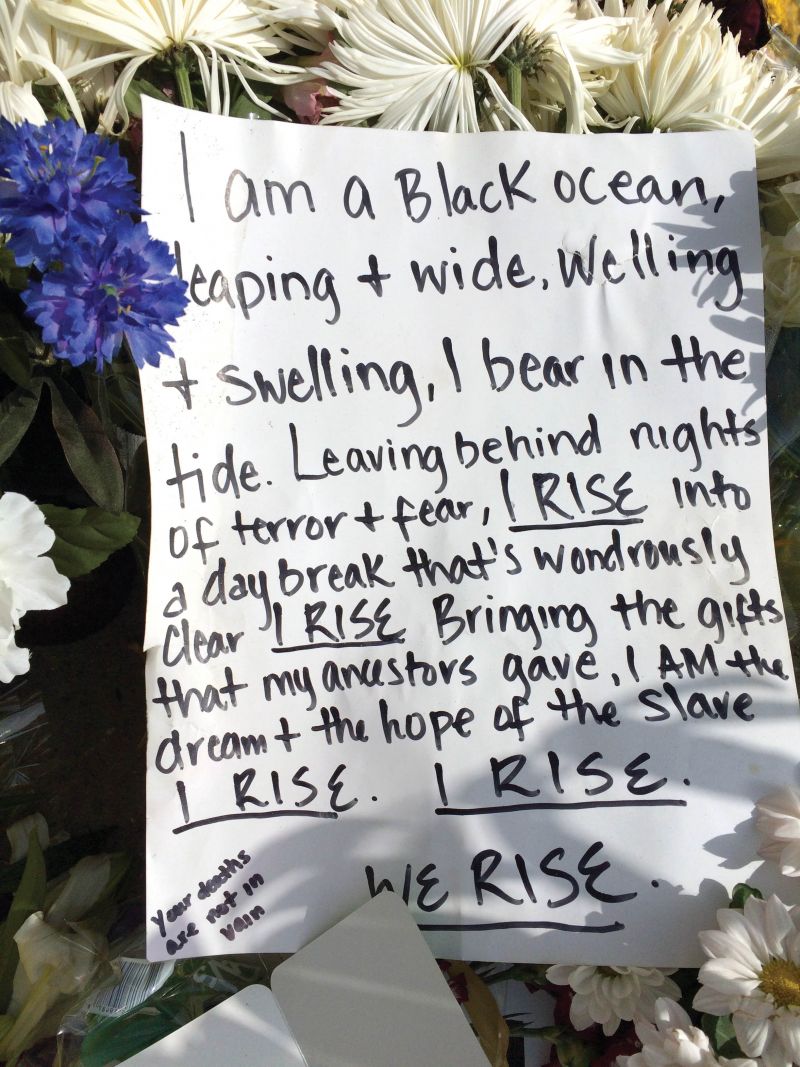 I am a Black ocean,
leaping + wide, Welling
+ swelling, I bear in the
tide. Leaving behind nights
of terror + fear, I RISE into
a daybreak that's wondrously
clear I RISE Bringing the gifts
that my ancestors gave, I AM the
dream + the hope of the slave
I RISE. I RISE.
WE RISE.
Your deaths
are not in
vain